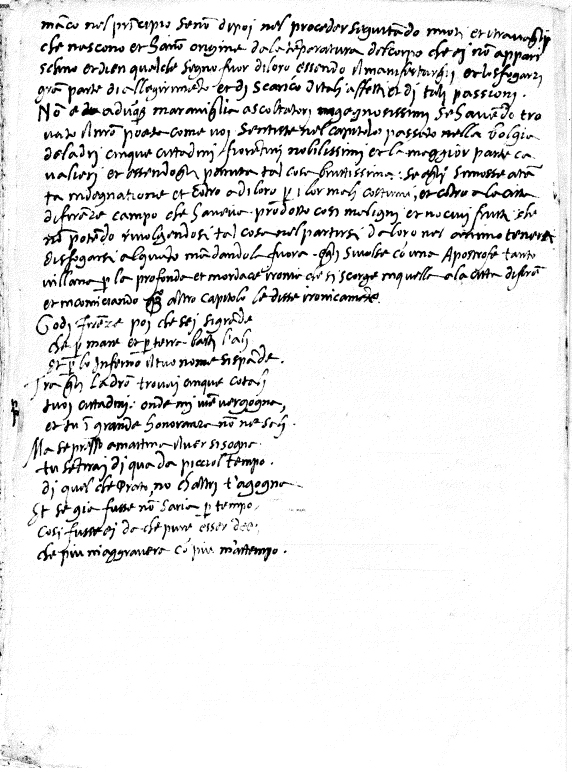 manco nel principio se nō dipoi nel proceder seguitādo moti et travagli
che nascono et hāno origine da la tēperatura del corpo che ei nō appari
schino et dien qualche segno fuor di loro essendo il manifestargli et lo sfogarsi
grā parte di allegirimēto et di scarico di tali affetti et di tali passioni.
Nō e adūq; maraviglia ascoltatori nobilissimi se havēdo tro
vato il nrō poeta come voi sentiste nel capitolo passato nella bolgia
de ladri cinque cittadini fiorētini nobilissimi et la maggior parte ca
valieri et essendogli paruta tal cosa bruttissima: se egli si mosse a tā
ta indegnatione et cōtro a di loro p i lor mali costumi, et cōtro a la citta
di firēze campo che haveva prodotto cosi maligni et nocivi frutti che
nō potēdo rivolgēdosi tal cosa nel partirsi da loro nel animo tenersi
di sfogarsi alquāto mādandola fuora egli si volse cō una Apostrofe tanto
villana p la profonda et mordace ironia che si scorge in quella a la citta di firēze
et incominciando altro capitolo le disse ironicamēte.
Godi firēze poi che sei si grāde
che p mare et p terra batti l'ali
et p lo Inferno il tuo nome si spāde.
Tra gli ladrō trovai cinque cotali
tuoi cittadini: onde mi viē vergogna,
et tu ī grande honoranza nō ne sali.
Ma se presso al mattino il ver si sogna
tu sētirai di qua da picciol tempo.
di quel che Prato, no ch'altri t'agogna
Et se gia fusse nō saria p tempo.
Cosi fusse ei da che pure esser dee.
che piu mi aggravera cō piu m'attempo.